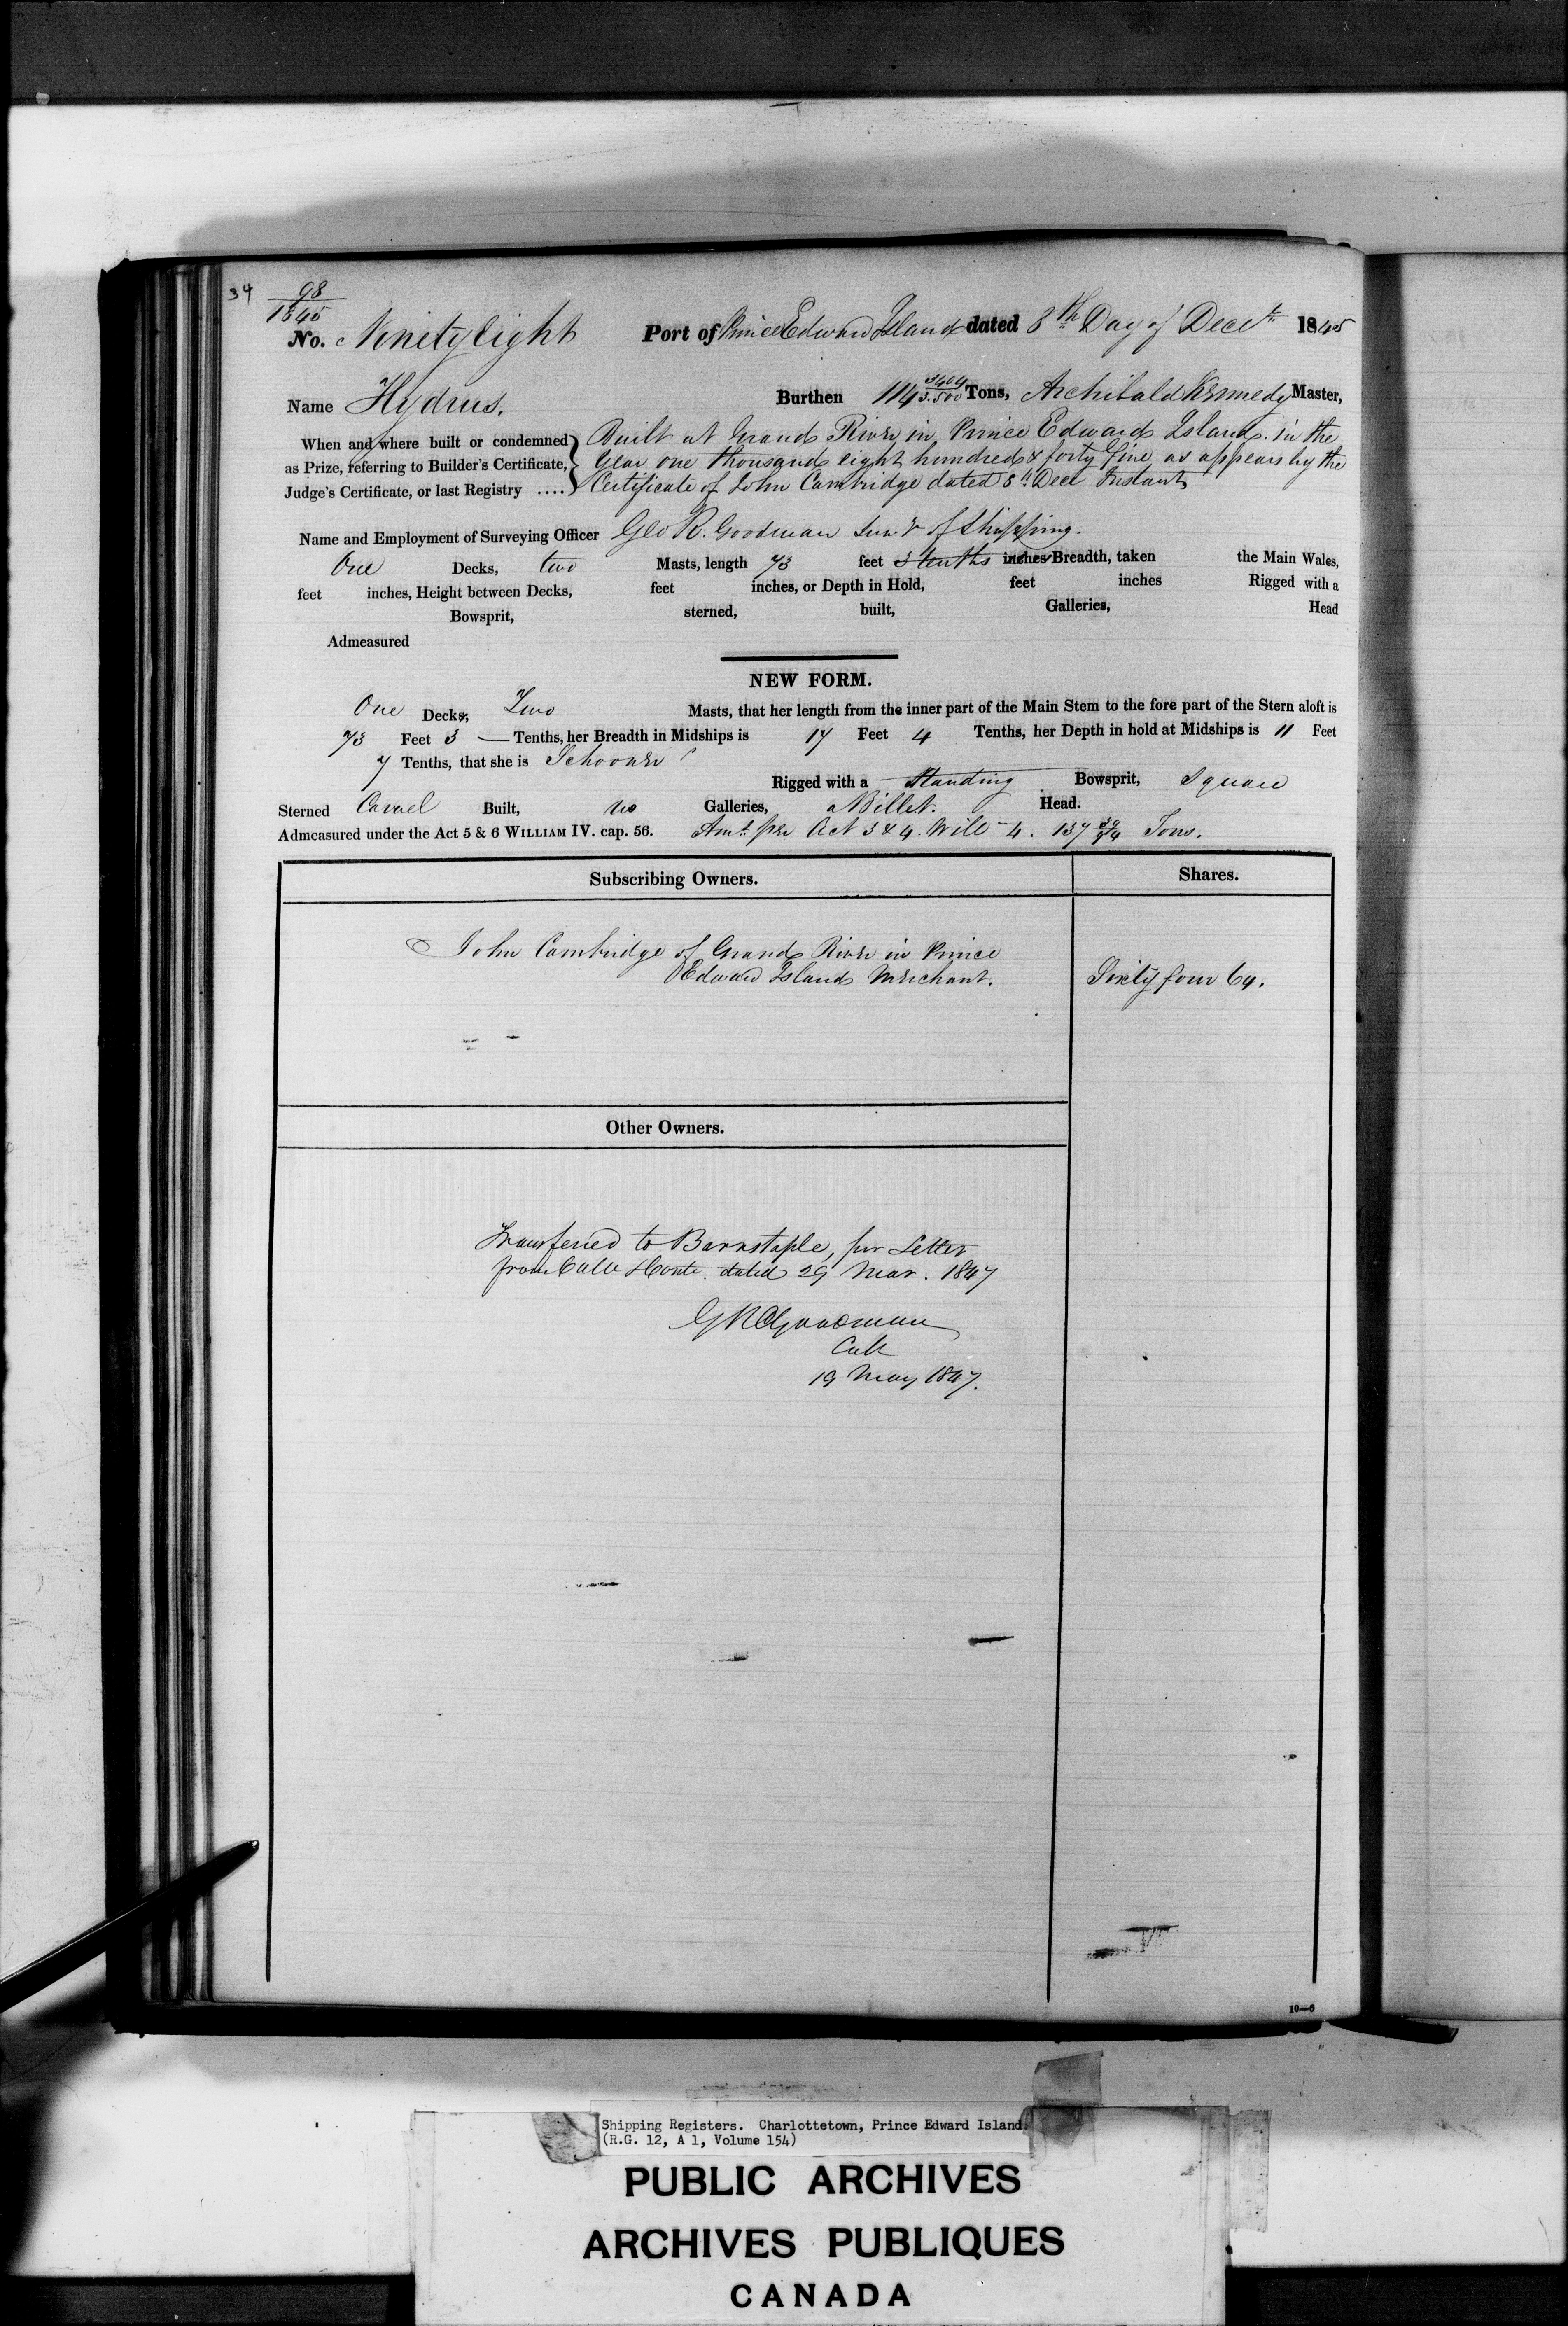 34 98
1845
No. Ninety Eight Port of Prince Edward Island dated 8th Day of Decr 1845
Name Hydrus. Burthen 114 3404/3.500 Tons, Archibald Kennedy Master,
When and where built or condemned Built at Grand River in Prince Edward Island. in the
as Prize, referring to Builder's Certificate, Year one thousand eight hundred & forty five as appears by the
Judge's Certificate, or last Registry .... Certificate of John Cambridge dated 8th Decr Instant
Name and Employment of Surveying Officer Geo R. Goodman Survr of Shipping.
One Decks, two Masts, length 73 feet 3 tenths inches Breadth, taken the Main Wales,
feet inches, Height between Decks, feet inches, or Depth in Hold, feet inches Rigged with a
Bowsprit, sterned, built, Galleries, Head
Admeasured
NEW FORM.
One Decks, Two Masts, that her length from the inner part of the Main Stem to the fore part of the Stern aloft is
73 Feet 3 — Tenths, her Breadth in Midships is 17 Feet 4 Tenths, her Depth in hold at Midships is 11 Feet
7 Tenths, that she is Schooner
Rigged with a Standing Bowsprit, Square
Sterned Carvel Built, no Galleries, a Billet. Head.
Admeasured under the Act 5 & 6 WILLIAM IV. cap. 56. Amt. per Act 3 & 4. Will 4. 137 39/94 Tons.
Subscribing Owners. Shares.
John Cambridge of Grand River in Prince
Edward Island Merchant. Sixty four 64.
Other Owners.
Transferred to Barnstaple, per Letter
from dated 29 Mar. 1847
G R Goodman
19 May 1847.
10—6
Shipping Registers. Charlottetown, Prince Edward Island
(R.G. 12, A 1, Volume 154)
PUBLIC ARCHIVES
ARCHIVES PUBLIQUES
CANADA